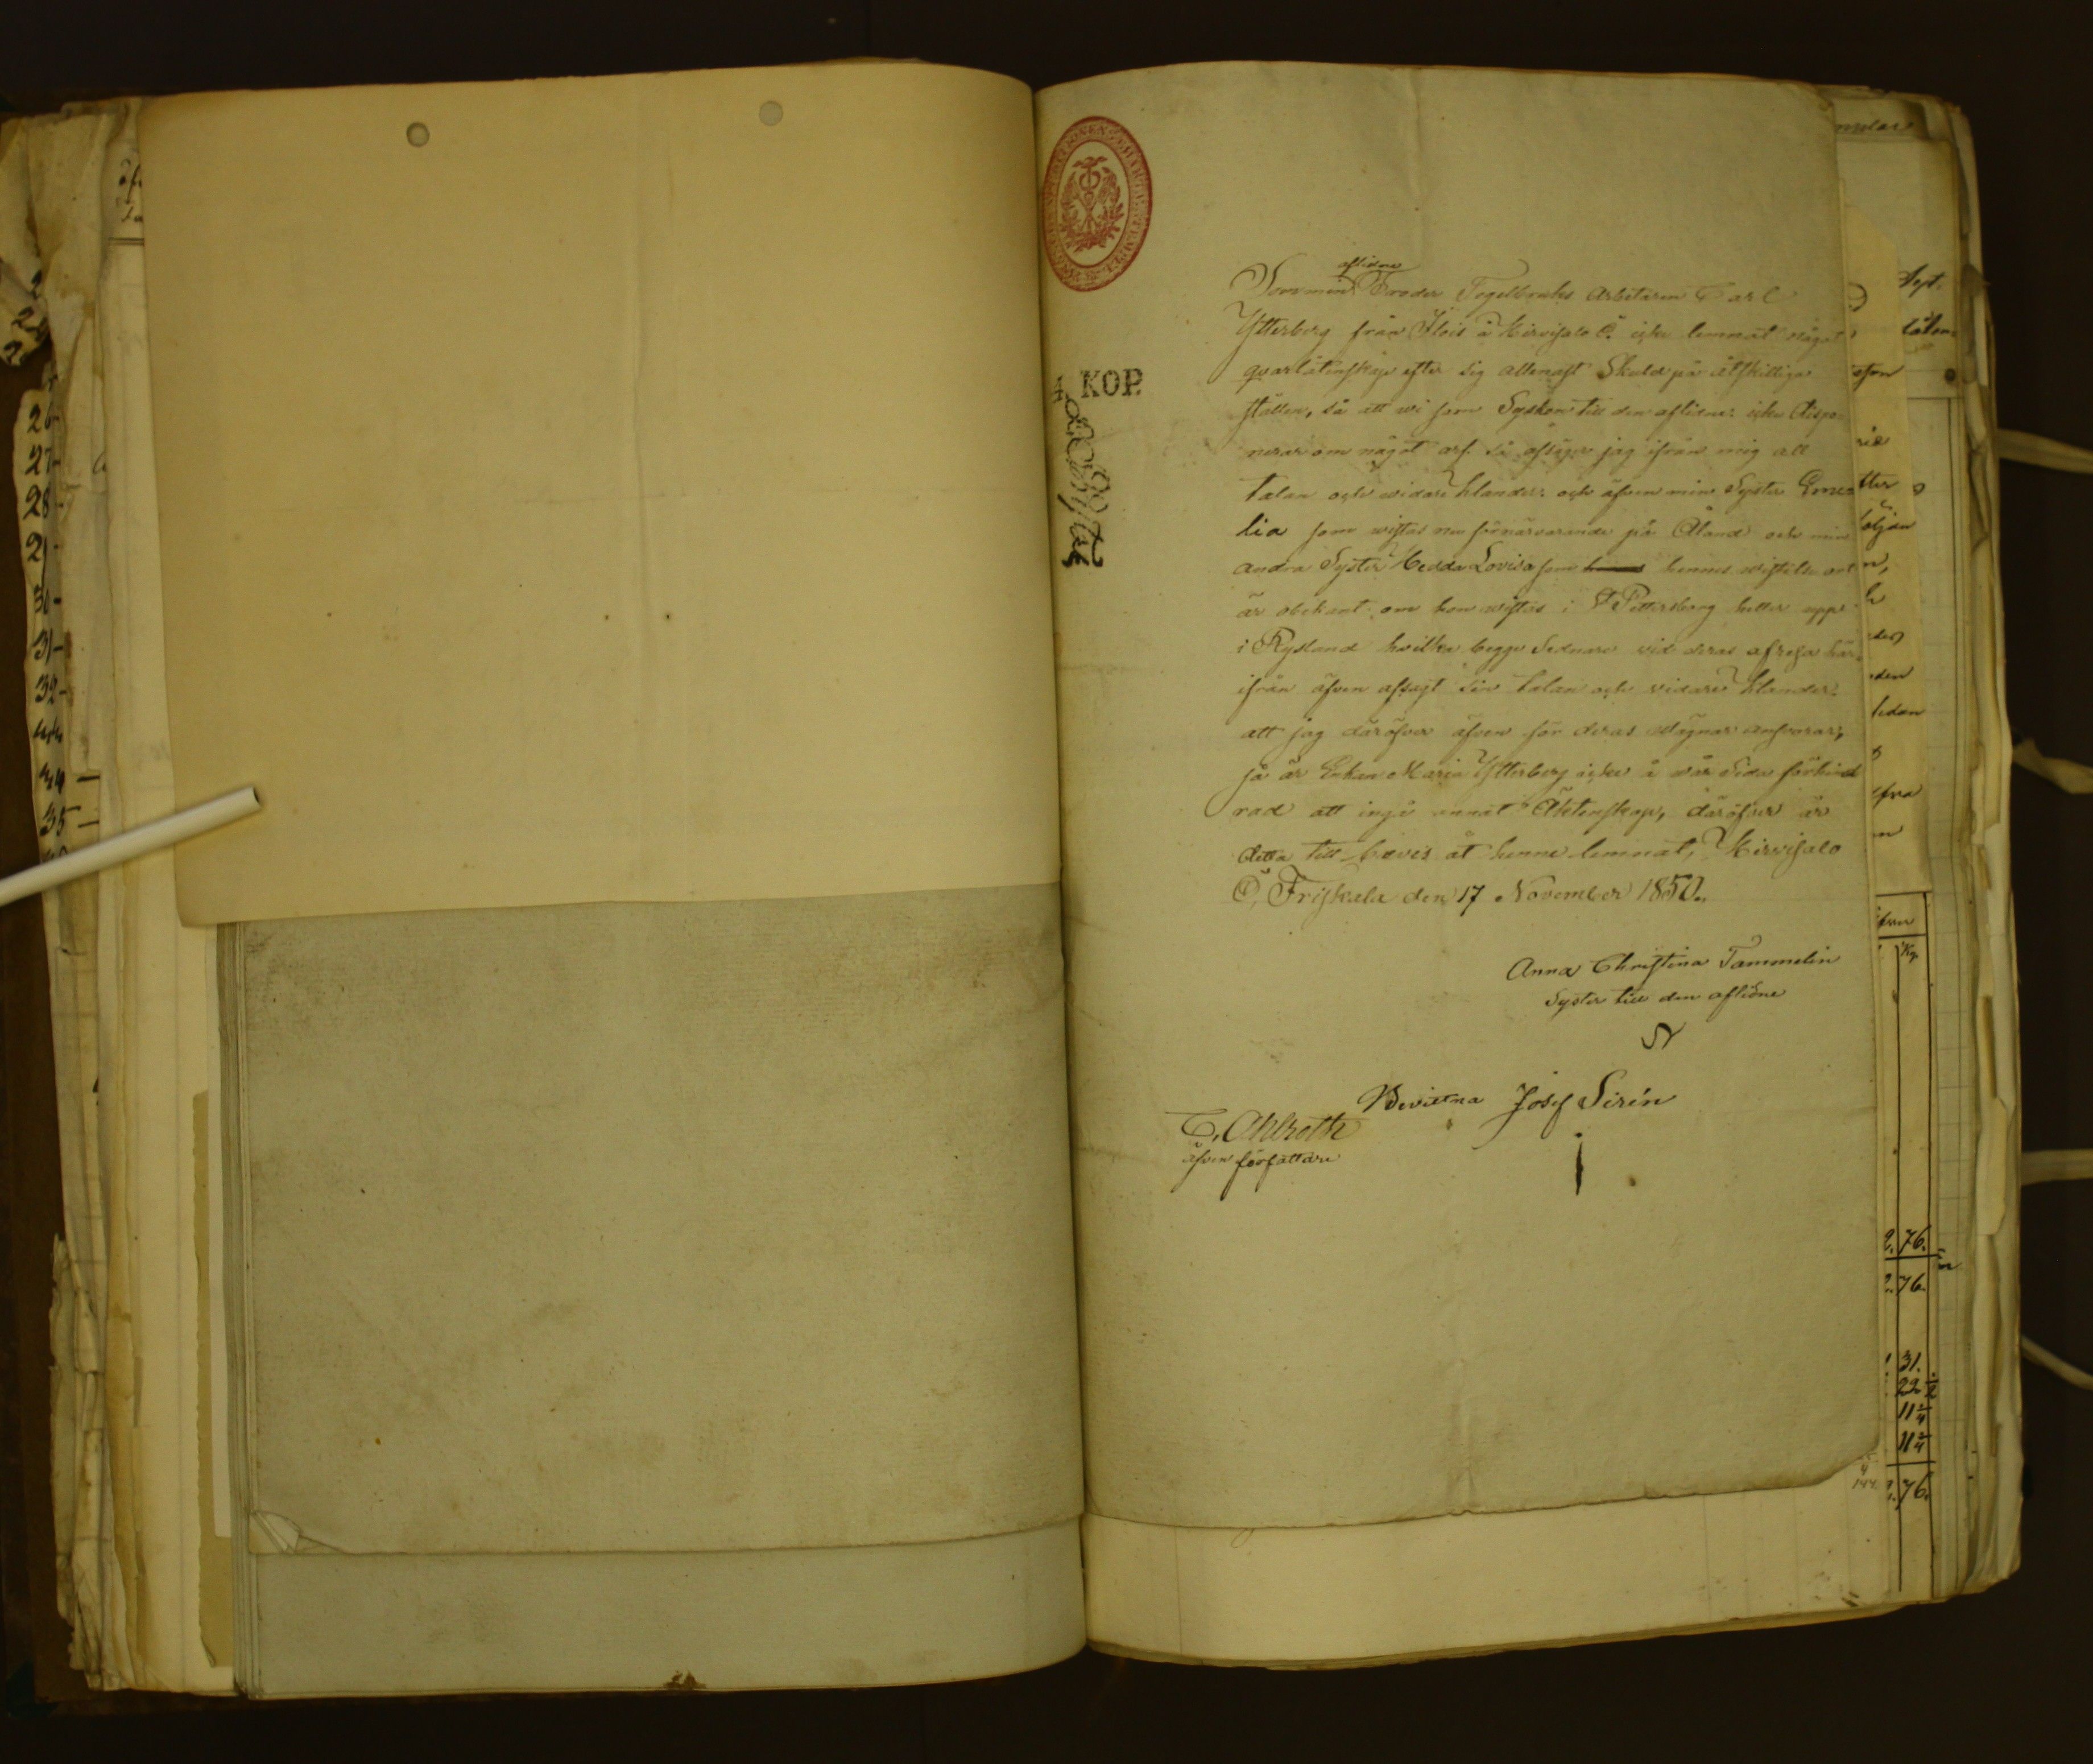 KOP.
aflidne
Som min Broder Tegelbruks Arbetaren Carl
Ytterberg från Ilois å Hirvisalo Ö. icke lemnat något
qvarlåtenskap efter sig allenast Skuld på åtskilliga
ställen, så att wi som Syskon till den aflidne icke dispo
nerar om något arf. Så afsäger jag ifrån mig all
talan och widare klander. och äfven min Syster Eme
lia som wistas nu förnärvarande på Åland och min
andra Syster Hedda Lovisa som hennes wistelse ort
är obekant om hon wistas i St Pettersborg heller uppe
i Rysland hvilka begge Sednare vid deras afresa här
ifrån äfven afsagt sin talan och vidare klander.
att jag däröfver äfven för deras wägnar ansvarar,
så är Enkan Maria Ytterberg icke å wår Sida förhind
rad att ingå annat Äktenskap, däröfver är
detta till bevis åt henne lemnat, Hirvisalo
Ö, Friskala den 17 November 1850.
Anna Christina Tammelin
Syster till den aflidne
Bevittna Josef Sirén
C. Ahlroth
äfven författare
26
27
28
30
31
32
34
35
Sept.
76.
76.
31.
22 1/2
11 1/4
11 1/4
76.